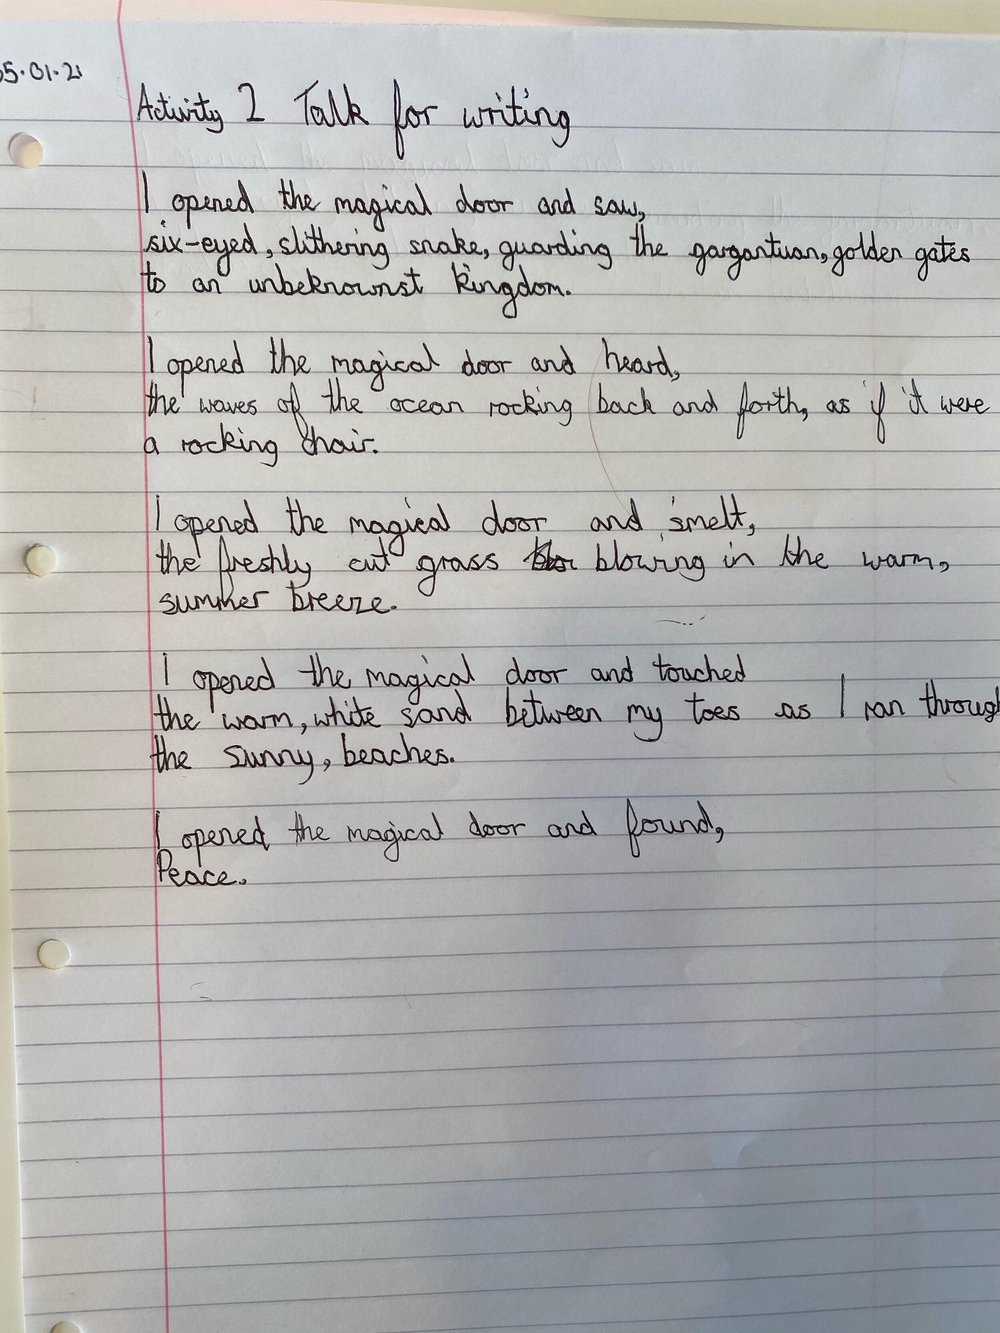 05.01.21
Activity 2 Talk for writing
I opened the magical door and saw,
six-eyed, slithering snake, guarding the gargantuan, golden gates
to an unbeknownst kingdom.
I opened the magical door and heard,
the waves of the ocean rocking back and forth, as if it were
a rocking chair.
I opened the magical door and smelt,
the freshly cut grass blowing in the warm,
summer breeze.
I opened the magical door and touched
the warm, white sand between my toes as I ran through
the sunny, beaches.
I opened the magical door and found,
Peace.